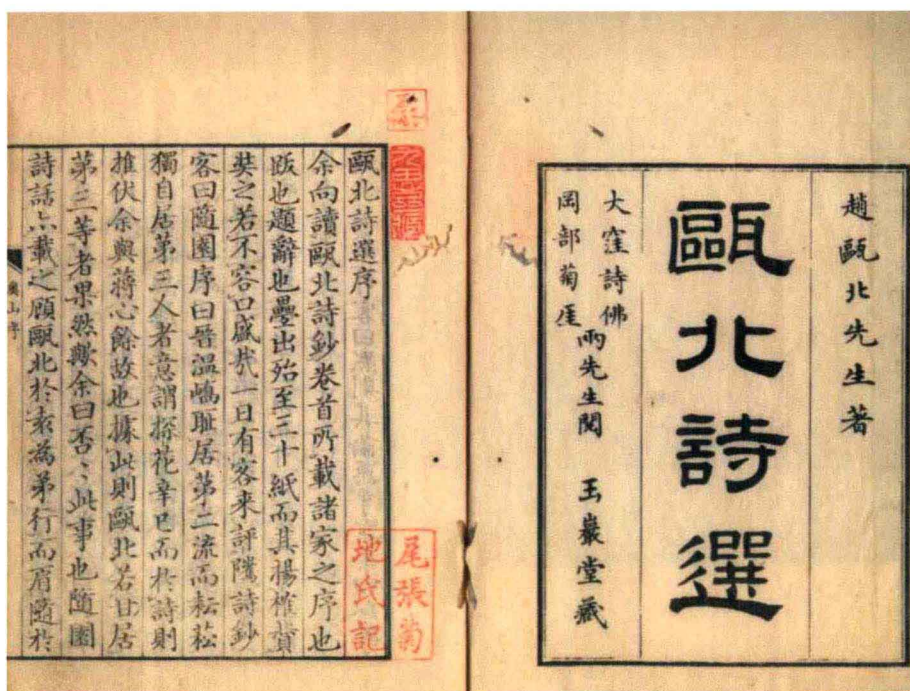 趙甌北先生著
甌北詩選
大窪詩佛
岡部菊厓
兩先生閱
玉巖堂藏
甌北詩選序
余向讀甌北詩鈔卷首所載諸家之序也
跋也題辭也疊出殆至三十紙而其揚榷贊
奘之若不容口盛哉一日有客来評隲詩鈔
客曰随園序曰晉溫嶠耻居第二流而耘菘
獨自居第三人者意謂探花辛巳而於詩則
推伏余與蔣心餘故也據此則甌北若甘居
第三等者果然歟余曰否〻此事也随園
詩話亦載之顧甌北於袁為弟行而肩随於
尾張菊
地氏記